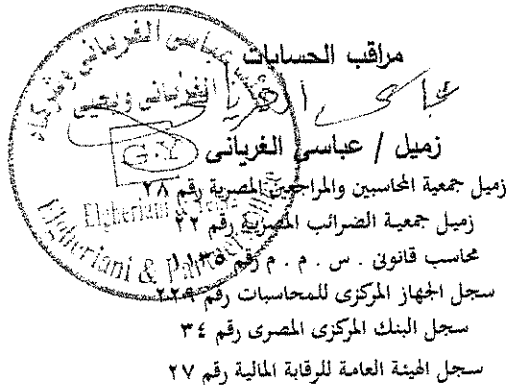 مراقب الحسابات
عباسى الغريانى
زميل / عباسى الغريانى
زميل جمعية المحاسبين والمراجعين المصرية رقم ٢٨
زميل جمعية الضرائب المصرية رقم ٢٢
محاسب قانونى . س . م . م رقم ١١٣٥
سجل الجهاز المركزى للمحاسبات رقم ٢٢٩
سجل البنك المركزى المصرى رقم ٣٤
سجل الهيئة العامة للرقابة المالية رقم ٢٧
عباسى الغريانى وشركاه
الغريانى ويحيى
G.Y
Elgheriani &